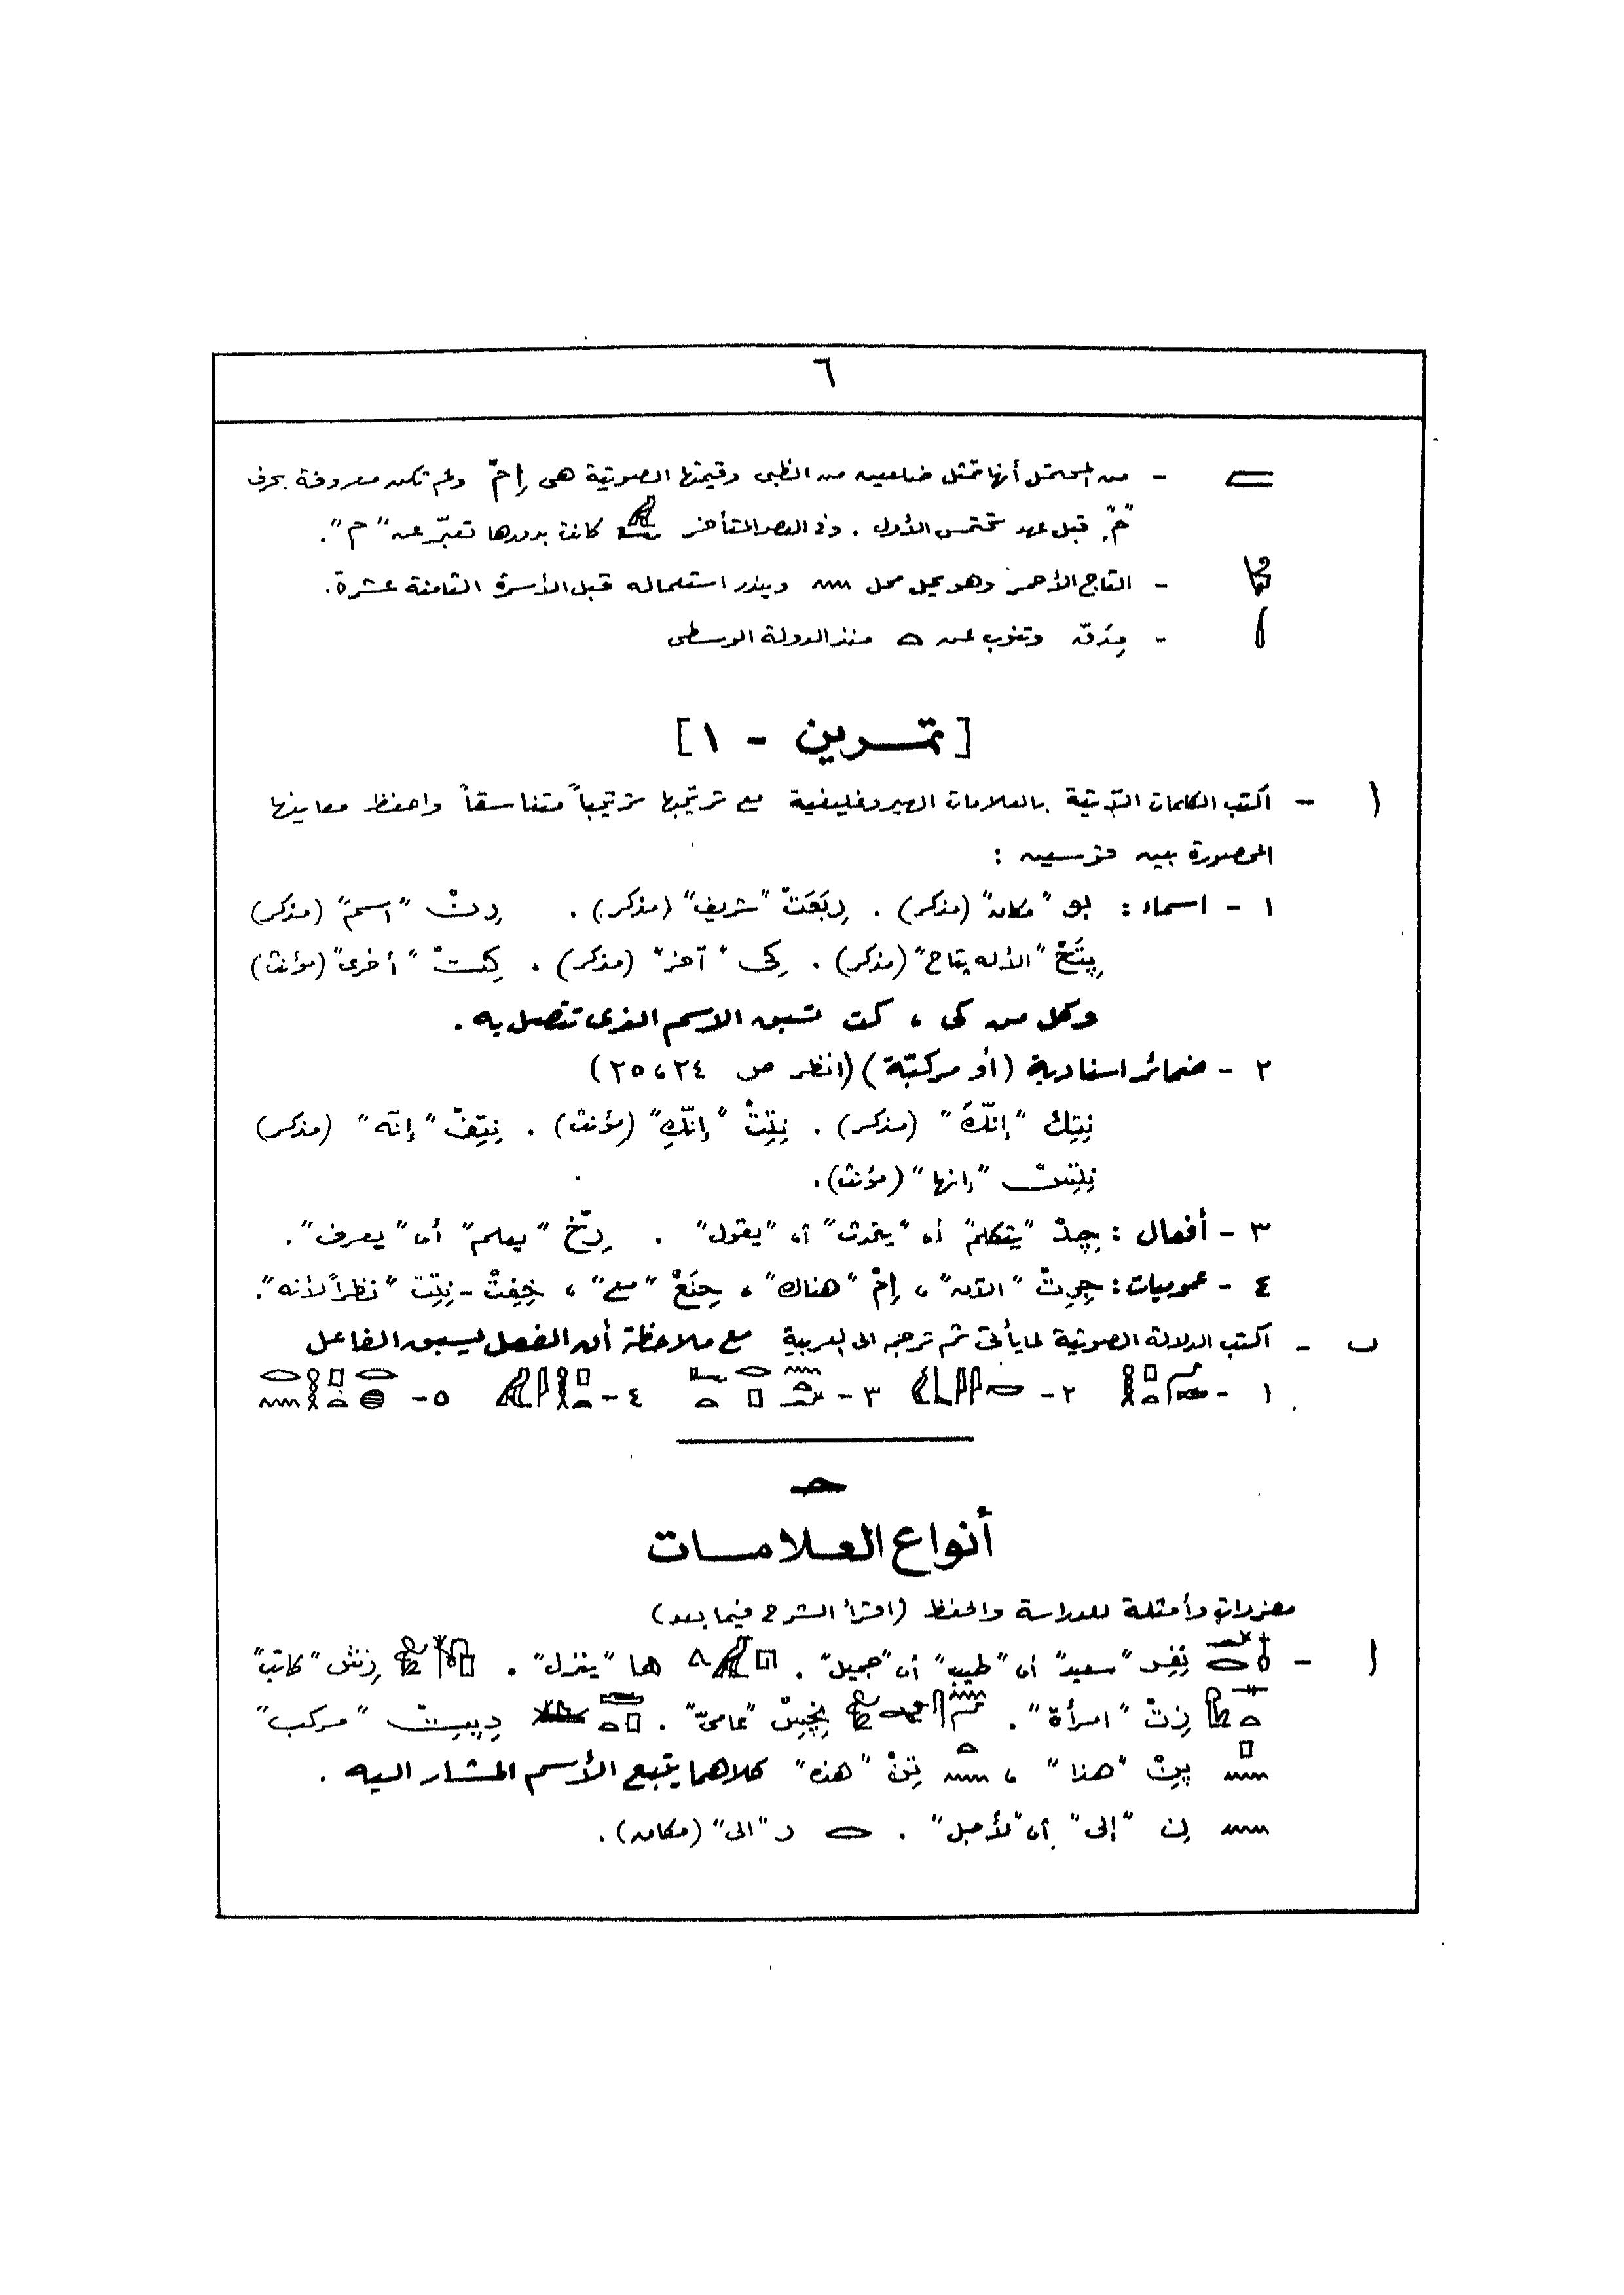 ٦
- من المحتمل أنها تمثل ضلعين من الظبى وقيمتها الصوتية هى إِمّ ولم تكن معروفة بحرف
"مّ" قبل عهد تحتمس الأول . وفى العصر المتأخر كانت بدورها تعبّر عن "م".
- التاج الأحمر وهو يحل محل وينذر استعماله قبل الأسرة الثامنة عشرة.
- مِدَقّ وتنوب عن منذ الدولة الوسطى
[تمرين - ١]
ا - اكتب الكلمات الآتية بالعلامات الهيروغليفية مع ترتيبها ترتيباً متناسقاً واحفظ معاينها
المحصورة بين قوسين :
١ - اسماء : بو "مكان" (مذكر) . "شريف" (مذكر) . رِنْ "اسم" (مذكر)
پِتَحْ "الأله پتاح" (مذكر) . كِى "آخر" (مذكر) . كِتْ "أخرى" (مؤنث)
وكل من كى ، كت تسبق الاسم الذى تتصل به .
٢ - ضمائر اسنادية (أو مركبّة) (انظر ص ٢٤ ، ٢٥)
نِتِكْ "إنّكَ" (مذكر) . "إنّكِ" (مؤنث) . نِتِفْ "إنّه" (مذكر)
نِتِسْ "إنها" (مؤنث).
٣ - أفعال : چِدْ "يتكلم" أو "يتحدث" أو "يقول" . رِخْ "يعلم" أو "يعرف".
٤ - عموميات : "الآن" ، إِمْ "هناك" ، حِنَعْ "مع" ، - نِتِتْ "نظراً لأنه".
ب - اكتب الدلالة الصوتية لما يأتى ثم ترجم الى العربية مع ملاحظة أن الفعل يسبق الفاعل
١ - ٢ - ٣ - ٤ - ٥ -
حـ
أنواع العلامات
مفردات وأمثلة للدراسة والحفظ (اقرأ الشرح فيما بعد)
ا - نِفِر "سعيد" أو "طيب" أو "جميل" . ها "ينزل" . زِش "كاتب"
زِتْ "امرأة" . نِچِسْ "عامىّ" . دِپِتْ "مركب"
پِنْ "هذا" ، تِنْ "هذه" كلاهما يتبع الأسم المشار اليه .
نِ "إلى" أو "لأجل" . ر "الى" (مكان) .